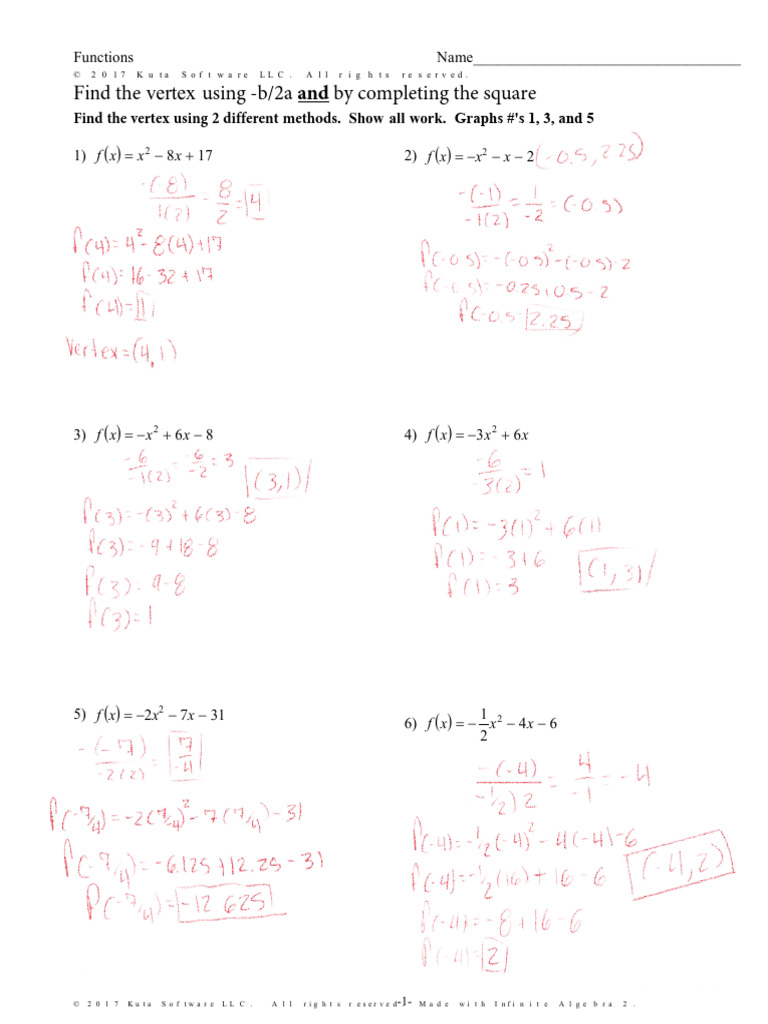 Functions
Name
© 2017 Kuta Software LLC. All rights reserved.
Find the vertex using -b/2a and by completing the square
Find the vertex using 2 different methods. Show all work. Graphs #'s 1, 3, and 5
1) f(x) = x² − 8x + 17
-(-8)/1(2) = 8/2 = 4
f(4)=4²-8(4)+17
f(4)=16-32+17
f(4)=1
Vertex=(4,1)
2) f(x) = −x² − x − 2 (-0.5, 2.25)
-(-1)/-1(2) = 1/-2 = (-0.5)
f(-0.5)=-(-0.5)²-(-0.5)-2
f(-0.5)=-0.25+0.5-2
f(-0.5-2.25
3) f(x) = −x² + 6x − 8
-6/-1(2) = -6/-2 = 3
(3,1)
f(3)=-(3)²+6(3)-8
f(3)=-9+18-8
f(3)-9-8
f(3)=1
4) f(x) = −3x² + 6x
-6/-3(2) = 1
f(1)=-3(1)²+6(1)
f(1)=-3+6
f(1)=3
(1,3)
5) f(x) = −2x² − 7x − 31
-(-7)/-2(2) = 7/-4
f(-7/4)=-2(7/4)²-7(7/4)-31
f(-7/4)=-6.125+12.25-31
f(-7/4)=-12 625
6) f(x) = −1/2 x² − 4x − 6
-(-4)/-1/2)2 = 4/-1 = -4
f(-4)=-1/2(-4)²-4(-4)-6
f(-4)=-1/2(16)+16-6
f(-4)=-8+16-6
f(-4)=2
(-4,2)
© 2017 Kuta Software LLC. All rights reserved. -1- Made with Infinite Algebra 2.